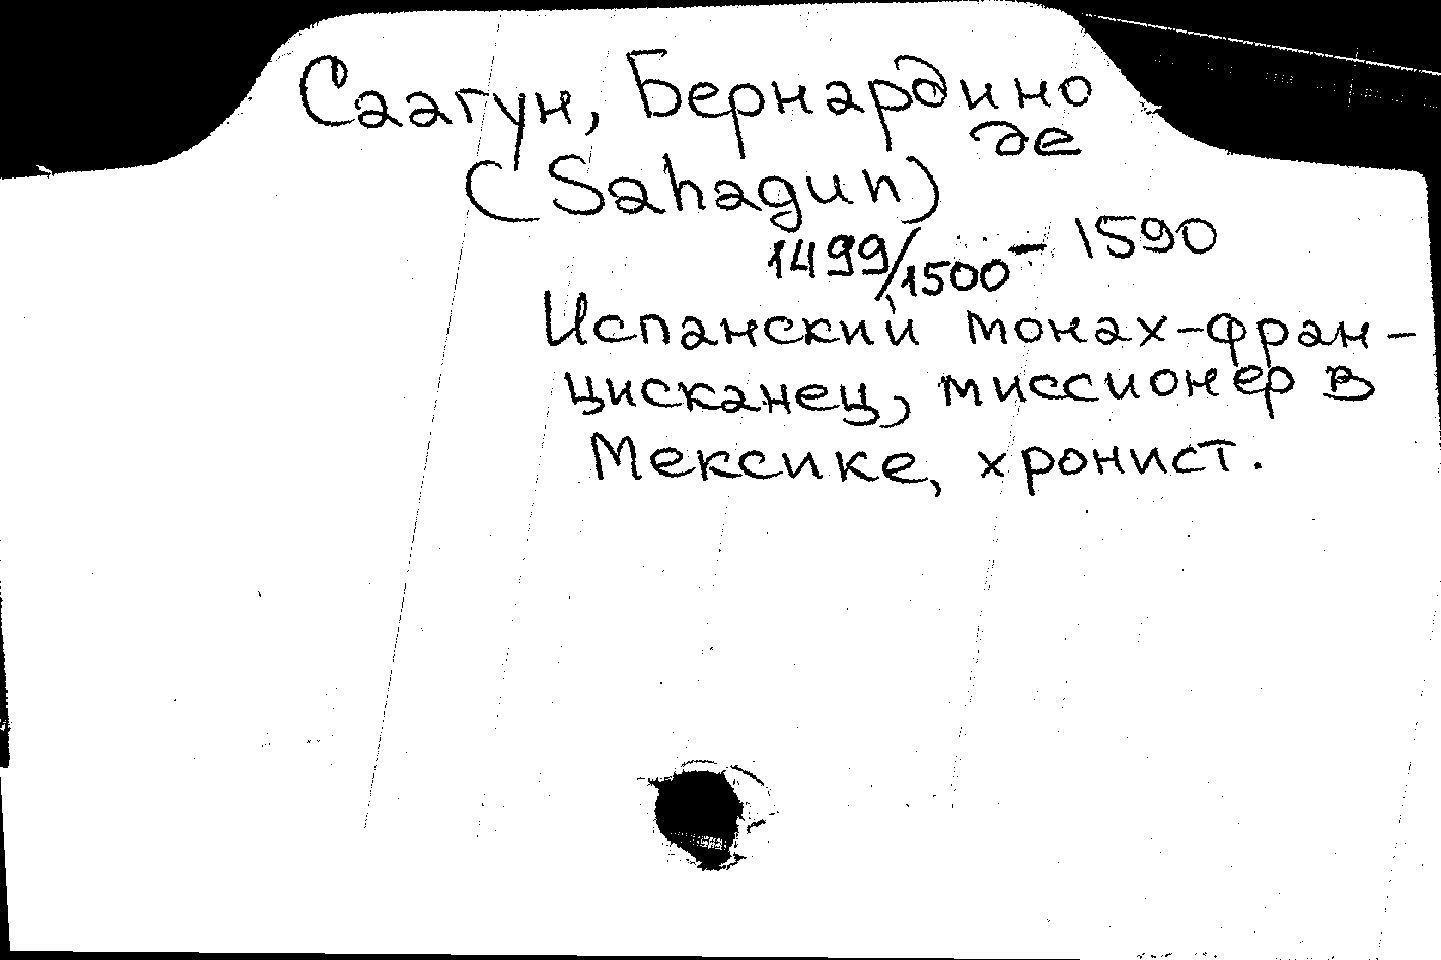 Саагун, Бернардино
де
(Sahagun)
1499/1500 - 1590
Испанский монах-фран-
цисканец, миссионер в
Мексике, хронист.